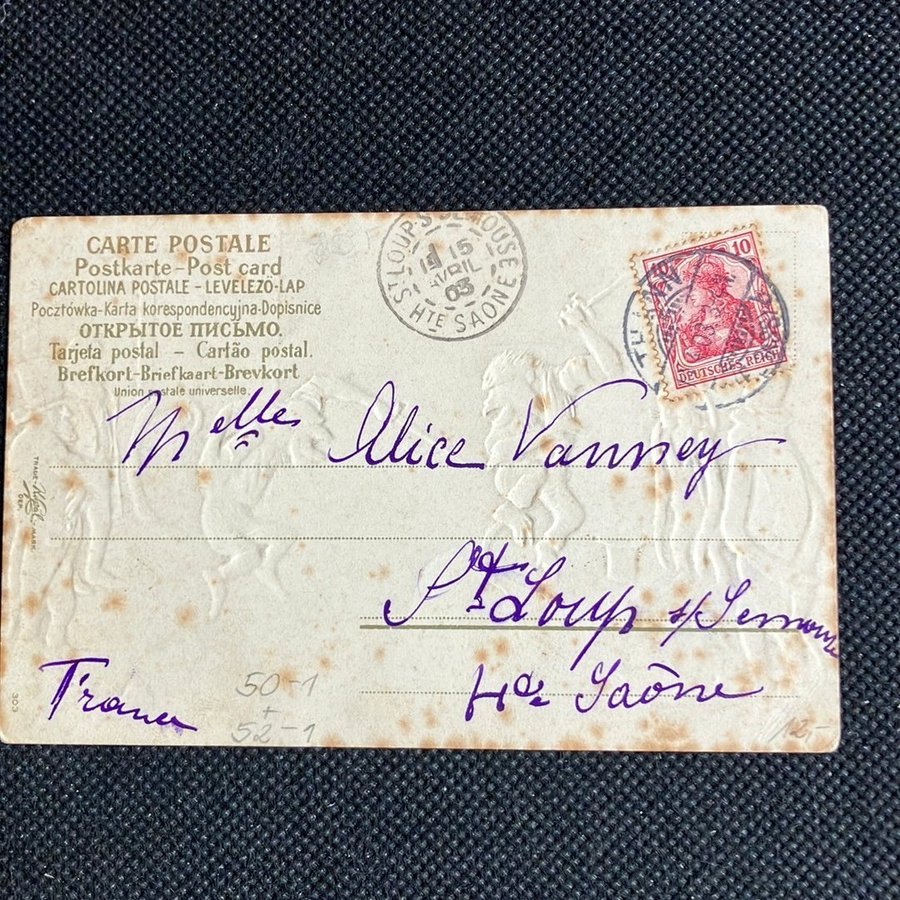 CARTE POSTALE
Postkarte - Post card
CARTOLINA POSTALE - LEVELEZO-LAP
Pocztówka - Karta korespondencyjna - Dopisnice
ОТКРЫТОЕ ПИСЬМО.
Tarjeta postal - Cartão postal.
Brefkort - Briefkaart - Brevkort
Union postale universelle.
ST LOUP-S-SEMOUSE
15
AVRIL
03
HTE SAONE
10
DEUTSCHES REICH
Melle Alice Vanney
St Loup s/Semouse
Hte Saône
France
50-1
+
52-1
12-
TRADE
MARK
303